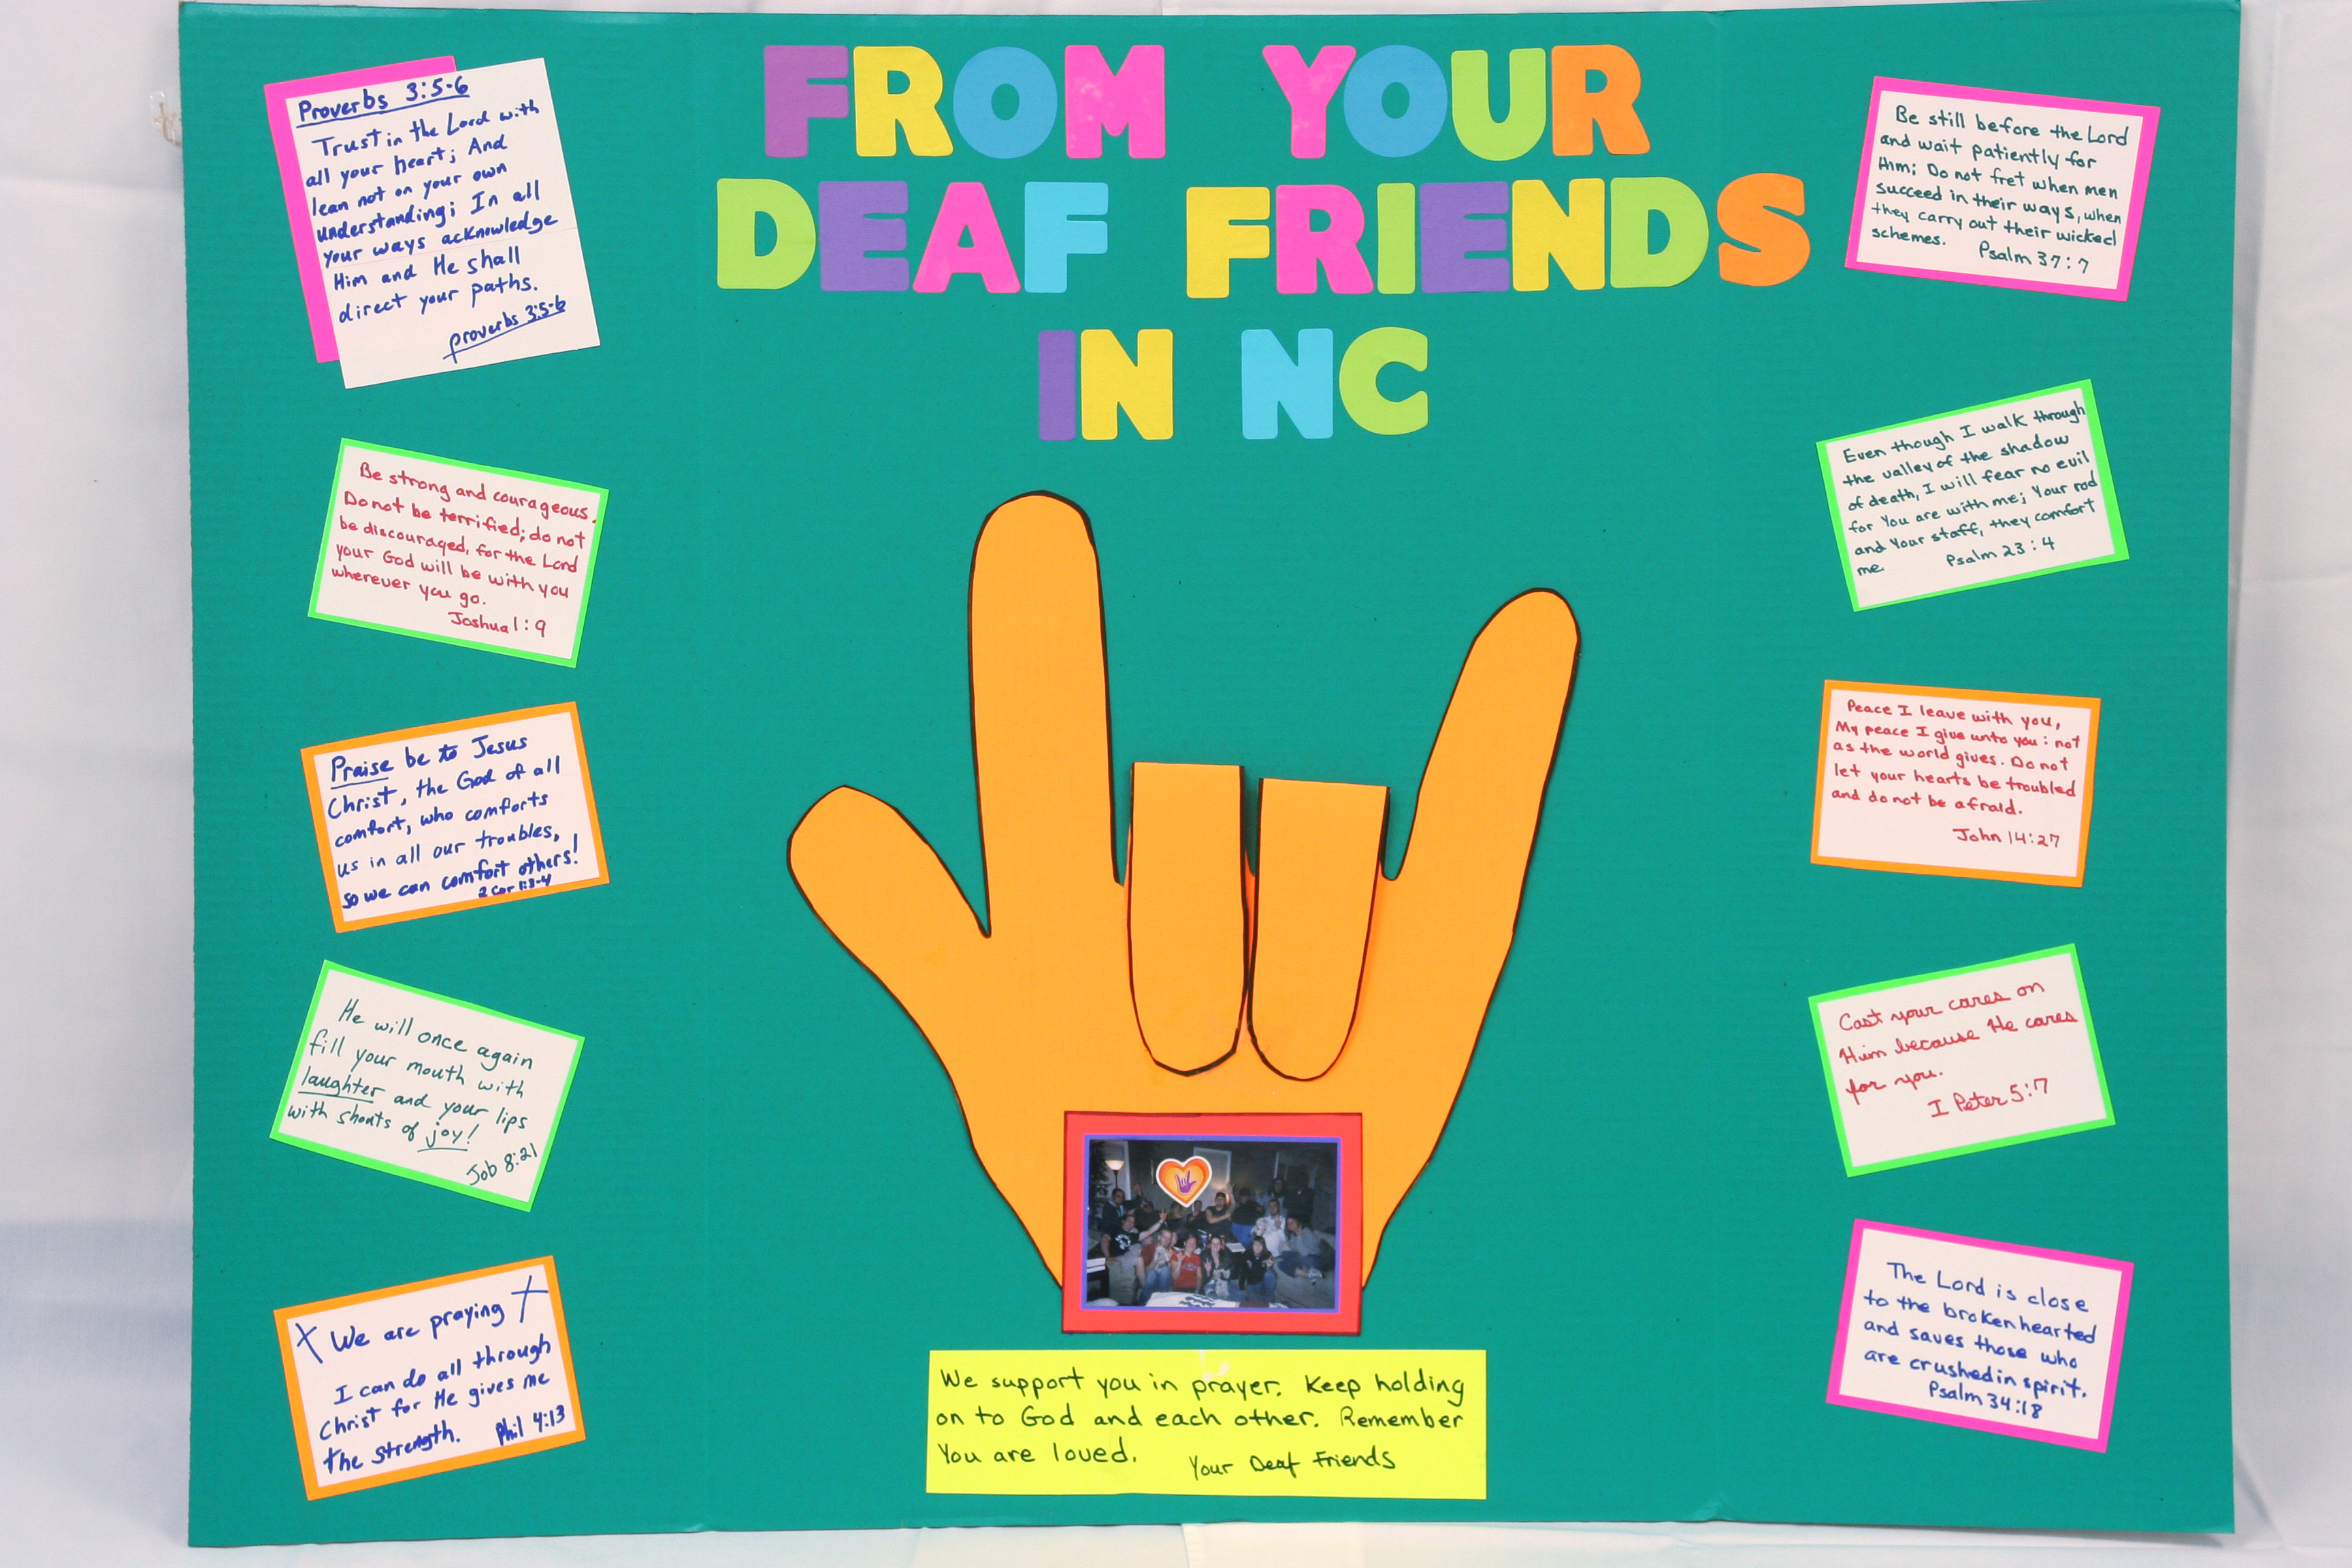 FROM YOUR
DEAF FRIENDS
IN NC
Proverbs 3:5-6
Trust in the Lord with
all your heart; And
lean not on your own
understanding; In all
your ways acknowledge
Him and He shall
direct your paths.
proverbs 3:5-6
Be strong and courageous.
Do not be terrified; do not
be discouraged, for the Lord
your God will be with you
wherever you go.
Joshua 1:9
Praise be to Jesus
Christ, the God of all
comfort, who comforts
us in all our troubles,
so we can comfort others!
2 Cor 1:3-4
He will once again
fill your mouth with
laughter and your lips
with shouts of joy!
Job 8:21
We are praying
I can do all through
Christ for He gives me
the strength. Phil 4:13
Be still before the Lord
and wait patiently for
Him; Do not fret when men
succeed in their ways, when
they carry out their wicked
schemes. Psalm 37:7
Even though I walk through
the valley of the shadow
of death, I will fear no evil
for You are with me; Your rod
and Your staff, they comfort
me. Psalm 23:4
Peace I leave with you,
My peace I give unto you: not
as the world gives. Do not
let your hearts be troubled
and do not be afraid.
John 14:27
Cast your cares on
Him because He cares
for you.
I Peter 5:7
The Lord is close
to the brokenhearted
and saves those who
are crushed in spirit.
Psalm 34:18
We support you in prayer. Keep holding
on to God and each other. Remember
You are loved. Your Deaf Friends